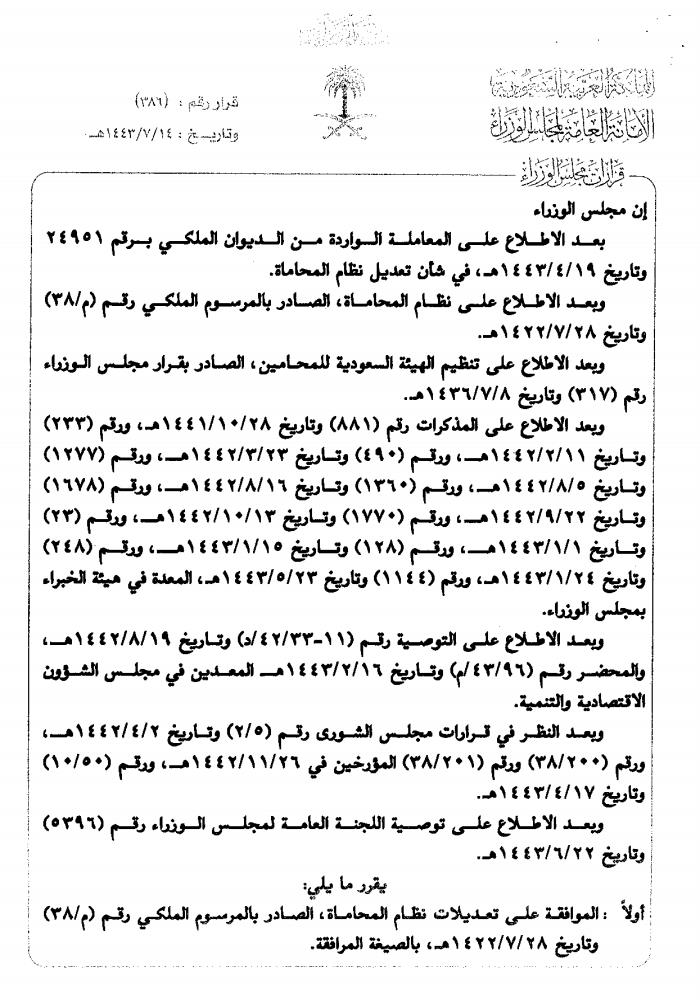 المملكة العربية السعودية
الأمانة العامة لمجلس الوزراء
قرار رقم : (٣٨٦)
وتاريخ : ١٤٤٣/٧/١٤هـ
قرارات مجلس الوزراء
إن مجلس الوزراء
بعد الاطلاع على المعاملة الواردة من الديوان الملكي برقم ٢٤٩٥١
وتاريخ ١٤٤٣/٤/١٩هـ، في شأن تعديل نظام المحاماة.
وبعد الاطلاع على نظام المحاماة، الصادر بالمرسوم الملكي رقم (م/٣٨)
وتاريخ ١٤٢٢/٧/٢٨هـ.
وبعد الاطلاع على تنظيم الهيئة السعودية للمحامين، الصادر بقرار مجلس الوزراء
رقم (٣١٧) وتاريخ ١٤٣٦/٧/٨هـ.
وبعد الاطلاع على المذكرات رقم (٨٨١) وتاريخ ١٤٤١/١٠/٢٨هـ، ورقم (٢٣٣)
وتاريخ ١٤٤٢/٢/١١هـ، ورقم (٤٩٠) وتاريخ ١٤٤٢/٣/٢٣هـ، ورقم (١٢٧٧)
وتاريخ ١٤٤٢/٨/٥هـ، ورقم (١٣٦٠) وتاريخ ١٤٤٢/٨/١٦هـ، ورقم (١٦٧٨)
وتاريخ ١٤٤٢/٩/٢٢هـ، ورقم (١٧٧٠) وتاريخ ١٤٤٢/١٠/١٣هـ، ورقم (٢٣)
وتاريخ ١٤٤٣/١/١هـ، ورقم (١٢٨) وتاريخ ١٤٤٣/١/١٥هـ، ورقم (٢٤٨)
وتاريخ ١٤٤٣/١/٢٤هـ، ورقم (١١٤٤) وتاريخ ١٤٤٣/٥/٢٣هـ، المعدة في هيئة الخبراء
بمجلس الوزراء.
وبعد الاطلاع على التوصية رقم (١١-٤٢/٣٣/د) وتاريخ ١٤٤٢/٨/١٩هـ،
والمحضر رقم (٤٣/٩٦/م) وتاريخ ١٤٤٣/٢/١٦هـ المعدين في مجلس الشؤون
الاقتصادية والتنمية.
وبعد النظر في قرارات مجلس الشورى رقم (٢/٥) وتاريخ ١٤٤٢/٤/٢هـ،
ورقم (٣٨/٢٠٠) ورقم (٣٨/٢٠١) المؤرخين في ١٤٤٢/١١/٢٦هـ، ورقم (١٠/٥٠)
وتاريخ ١٤٤٣/٤/١٧هـ.
وبعد الاطلاع على توصية اللجنة العامة لمجلس الوزراء رقم (٥٣٩٦)
وتاريخ ١٤٤٣/٦/٢٢هـ.
يقرر ما يلي:
أولاً : الموافقة على تعديلات نظام المحاماة، الصادر بالمرسوم الملكي رقم (م/٣٨)
وتاريخ ١٤٢٢/٧/٢٨هـ، بالصيغة المرافقة.